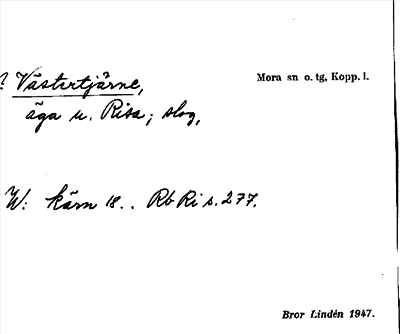 ? Västertjärne,
Mora sn o. tg, Kopp. l.
äga u. Risa; slog,
W: kärn 18.. Rb Ri s. 277.
Bror Lindén 1947.